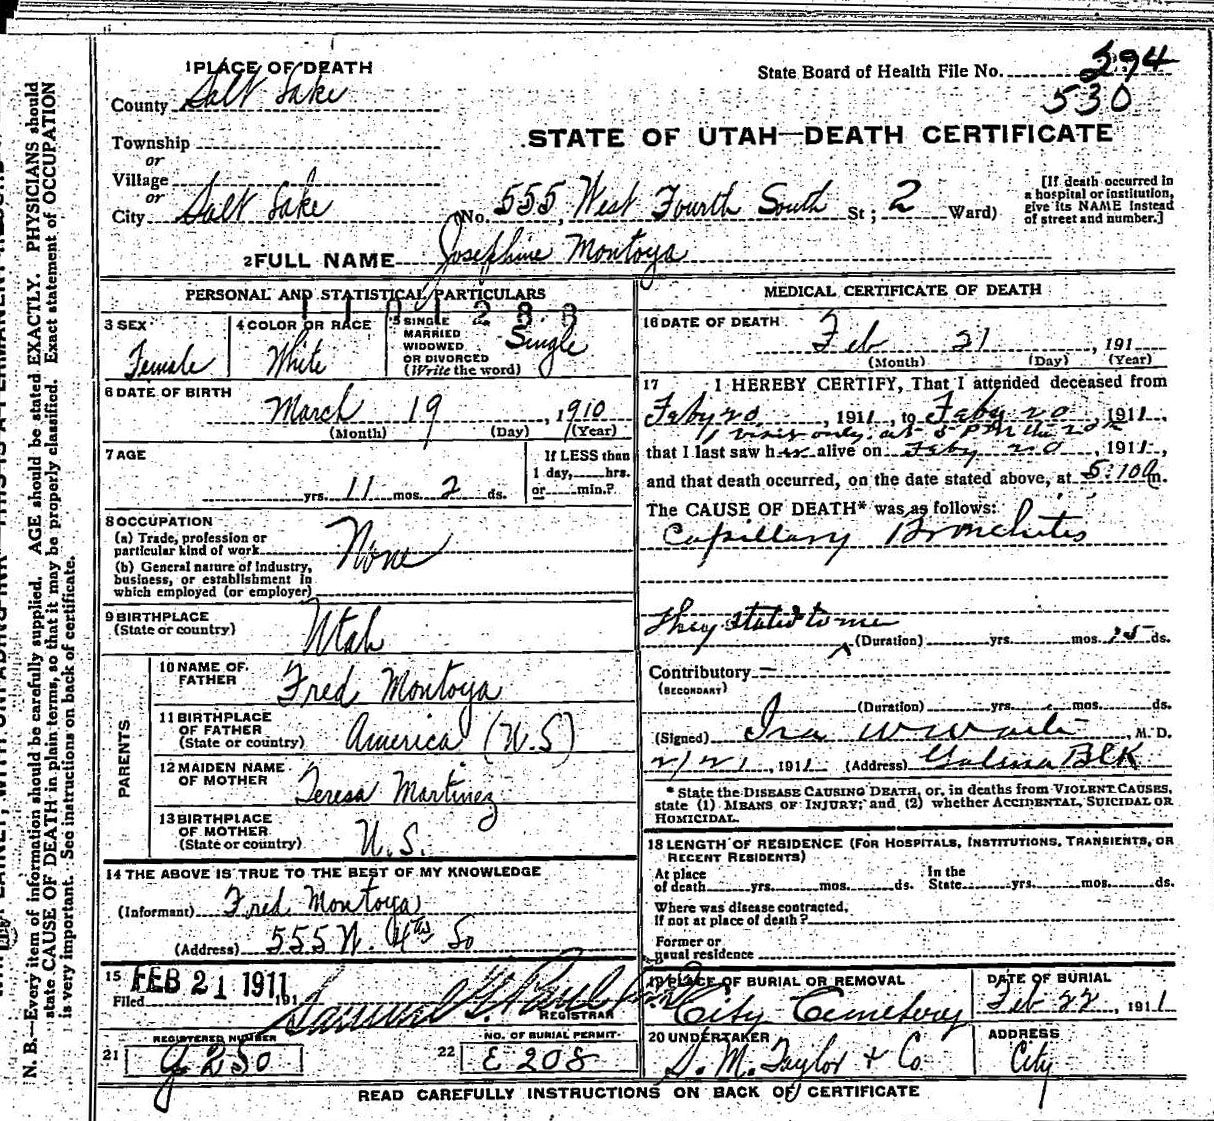 1 PLACE OF DEATH
State Board of Health File No. 294
530
County Salt Lake
STATE OF UTAH—DEATH CERTIFICATE
Township
or
Village
or
City Salt Lake (No. 555, West Fourth South St; 2 Ward)
[If death occurred in a hospital or institution, give its NAME instead of street and number.]
2 FULL NAME Josephine Montoya
PERSONAL AND STATISTICAL PARTICULARS
3 SEX Female
4 COLOR OR RACE White
5 SINGLE MARRIED WIDOWED OR DIVORCED (Write the word) Single
6 DATE OF BIRTH March 19, 1910
(Month) (Day) (Year)
7 AGE yrs. 11 mos. 2 ds.
If LESS than 1 day, hrs. or min.?
8 OCCUPATION
(a) Trade, profession or particular kind of work None
(b) General nature of industry, business, or establishment in which employed (or employer)
9 BIRTHPLACE
(State or country) Utah
PARENTS
10 NAME OF FATHER Fred Montoya
11 BIRTHPLACE OF FATHER
(State or country) America (U.S)
12 MAIDEN NAME OF MOTHER Teresa Martinez
13 BIRTHPLACE OF MOTHER
(State or country) U.S.
14 THE ABOVE IS TRUE TO THE BEST OF MY KNOWLEDGE
(Informant) Fred Montoya
(Address) 555 W. 4th So
15 FEB 21 1911
Filed 191
Samuel G. Paul
REGISTRAR
REGISTERED NUMBER
21 G 250
NO. OF BURIAL PERMIT
22 E 208
MEDICAL CERTIFICATE OF DEATH
16 DATE OF DEATH Feb 21, 191
(Month) (Day) (Year)
17 I HEREBY CERTIFY, That I attended deceased from
Feby 20, 1911, to Feby 20, 1911,
1 visit only at 5 PM the 20th
that I last saw her alive on Feby 20, 1911,
and that death occurred, on the date stated above, at 5:10 a m.
The CAUSE OF DEATH* was as follows:
Capillary Bronchitis
they stated to me
(Duration) yrs. mos. 15 ds.
Contributory
(SECONDARY)
(Duration) yrs. mos. ds.
(Signed) Ira W, M.D.
2/21, 1911 (Address) Galena Blk
* State the DISEASE CAUSING DEATH, or, in deaths from VIOLENT CAUSES, state (1) MEANS OF INJURY; and (2) whether ACCIDENTAL, SUICIDAL OR HOMICIDAL.
18 LENGTH OF RESIDENCE (FOR HOSPITALS, INSTITUTIONS, TRANSIENTS, OR RECENT RESIDENTS)
At place of death yrs. mos. ds. In the State yrs. mos. ds.
Where was disease contracted, if not at place of death?
Former or usual residence
19 PLACE OF BURIAL OR REMOVAL City Cemetery
DATE OF BURIAL Feb 22, 1911
20 UNDERTAKER S. M. Taylor & Co
ADDRESS City
READ CAREFULLY INSTRUCTIONS ON BACK OF CERTIFICATE
N. B.—Every item of information should be carefully supplied. AGE should be stated EXACTLY. PHYSICIANS should
state CAUSE OF DEATH in plain terms, so that it may be properly classified. Exact statement of OCCUPATION
is very important. See instructions on back of certificate.